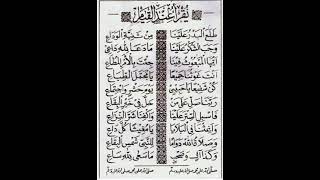 يُقْرَأُ عِنْدَ الْقِيَامِ
طَلَعَ الْبَدْرُ عَلَيْنَا مِنْ ثَنِيَّةِ الْوَدَاعِ
وَجَبَ الشُّكْرُ عَلَيْنَا مَا دَعَا لِلّٰهِ دَاعِ
أَيُّهَا الْمَبْعُوثُ فِينَا جِئْتَ بِالْأَمْرِ الْمُطَاعِ
أَنْتَ غَوْثُنَا جَمِيعًا يَا مُجَمَّلَ الطِّبَاعِ
كُنْ شَفِيعًا يَا حَبِيبِي يَوْمَ حَشْرٍ وَاجْتِمَاعِ
رَبَّنَا صَلِّ عَلَى مَنْ حَلَّ فِي خَيْرِ الْبِقَاعِ
فَاسْبِلِ السِّتْرَ عَلَيْنَا وَاكْفِنَا شَرَّ النِّزَاعِ
وَأَغِثْنَا فِي الْبَلَايَا يَا مُغِيثًا كُلَّ دَاعِ
وَصَلَاةُ اللّٰهِ دَوَامًا لِلنَّبِيِّ شَمْسِ الْبِقَاعِ
وَكَذَا آلٍ وَصَحْبٍ مَا سَعَى لِلّٰهِ سَاعِ